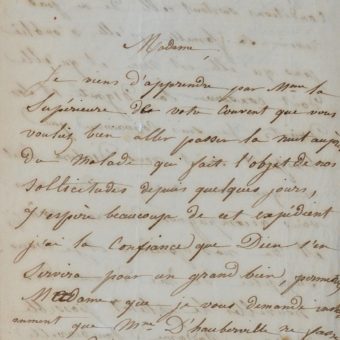 Madame,
Je viens d'apprendre par Mme la
Supérieure de votre couvent que vous
voulez bien aller passer la nuit auprès
du Malade qui fait l'objet de nos
sollicitudes depuis quelques jours,
j'espère beaucoup de cet expédient
j'ai la Confiance que Dieu s'en
servira pour un grand bien, permettez
Madame que je vous demande
que Mme D'hauberville ne